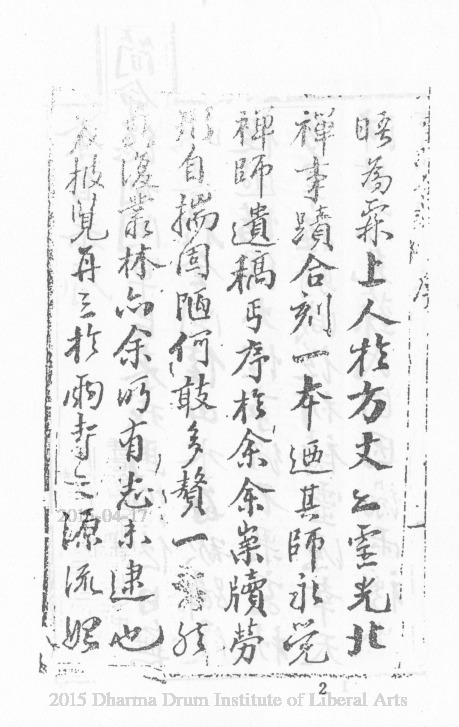 序
晤為霖上人於方丈出靈光北
禪事蹟合刻一本迺其師永覺
禪師遺稿丐序於余余案牘勞
形自揣固陋何敢多贅一然
復叢林亦余所有志未逮也
披覽再三於兩寺之源流
2015-04-17
2
2015 Dharma Drum Institute of Liberal Arts